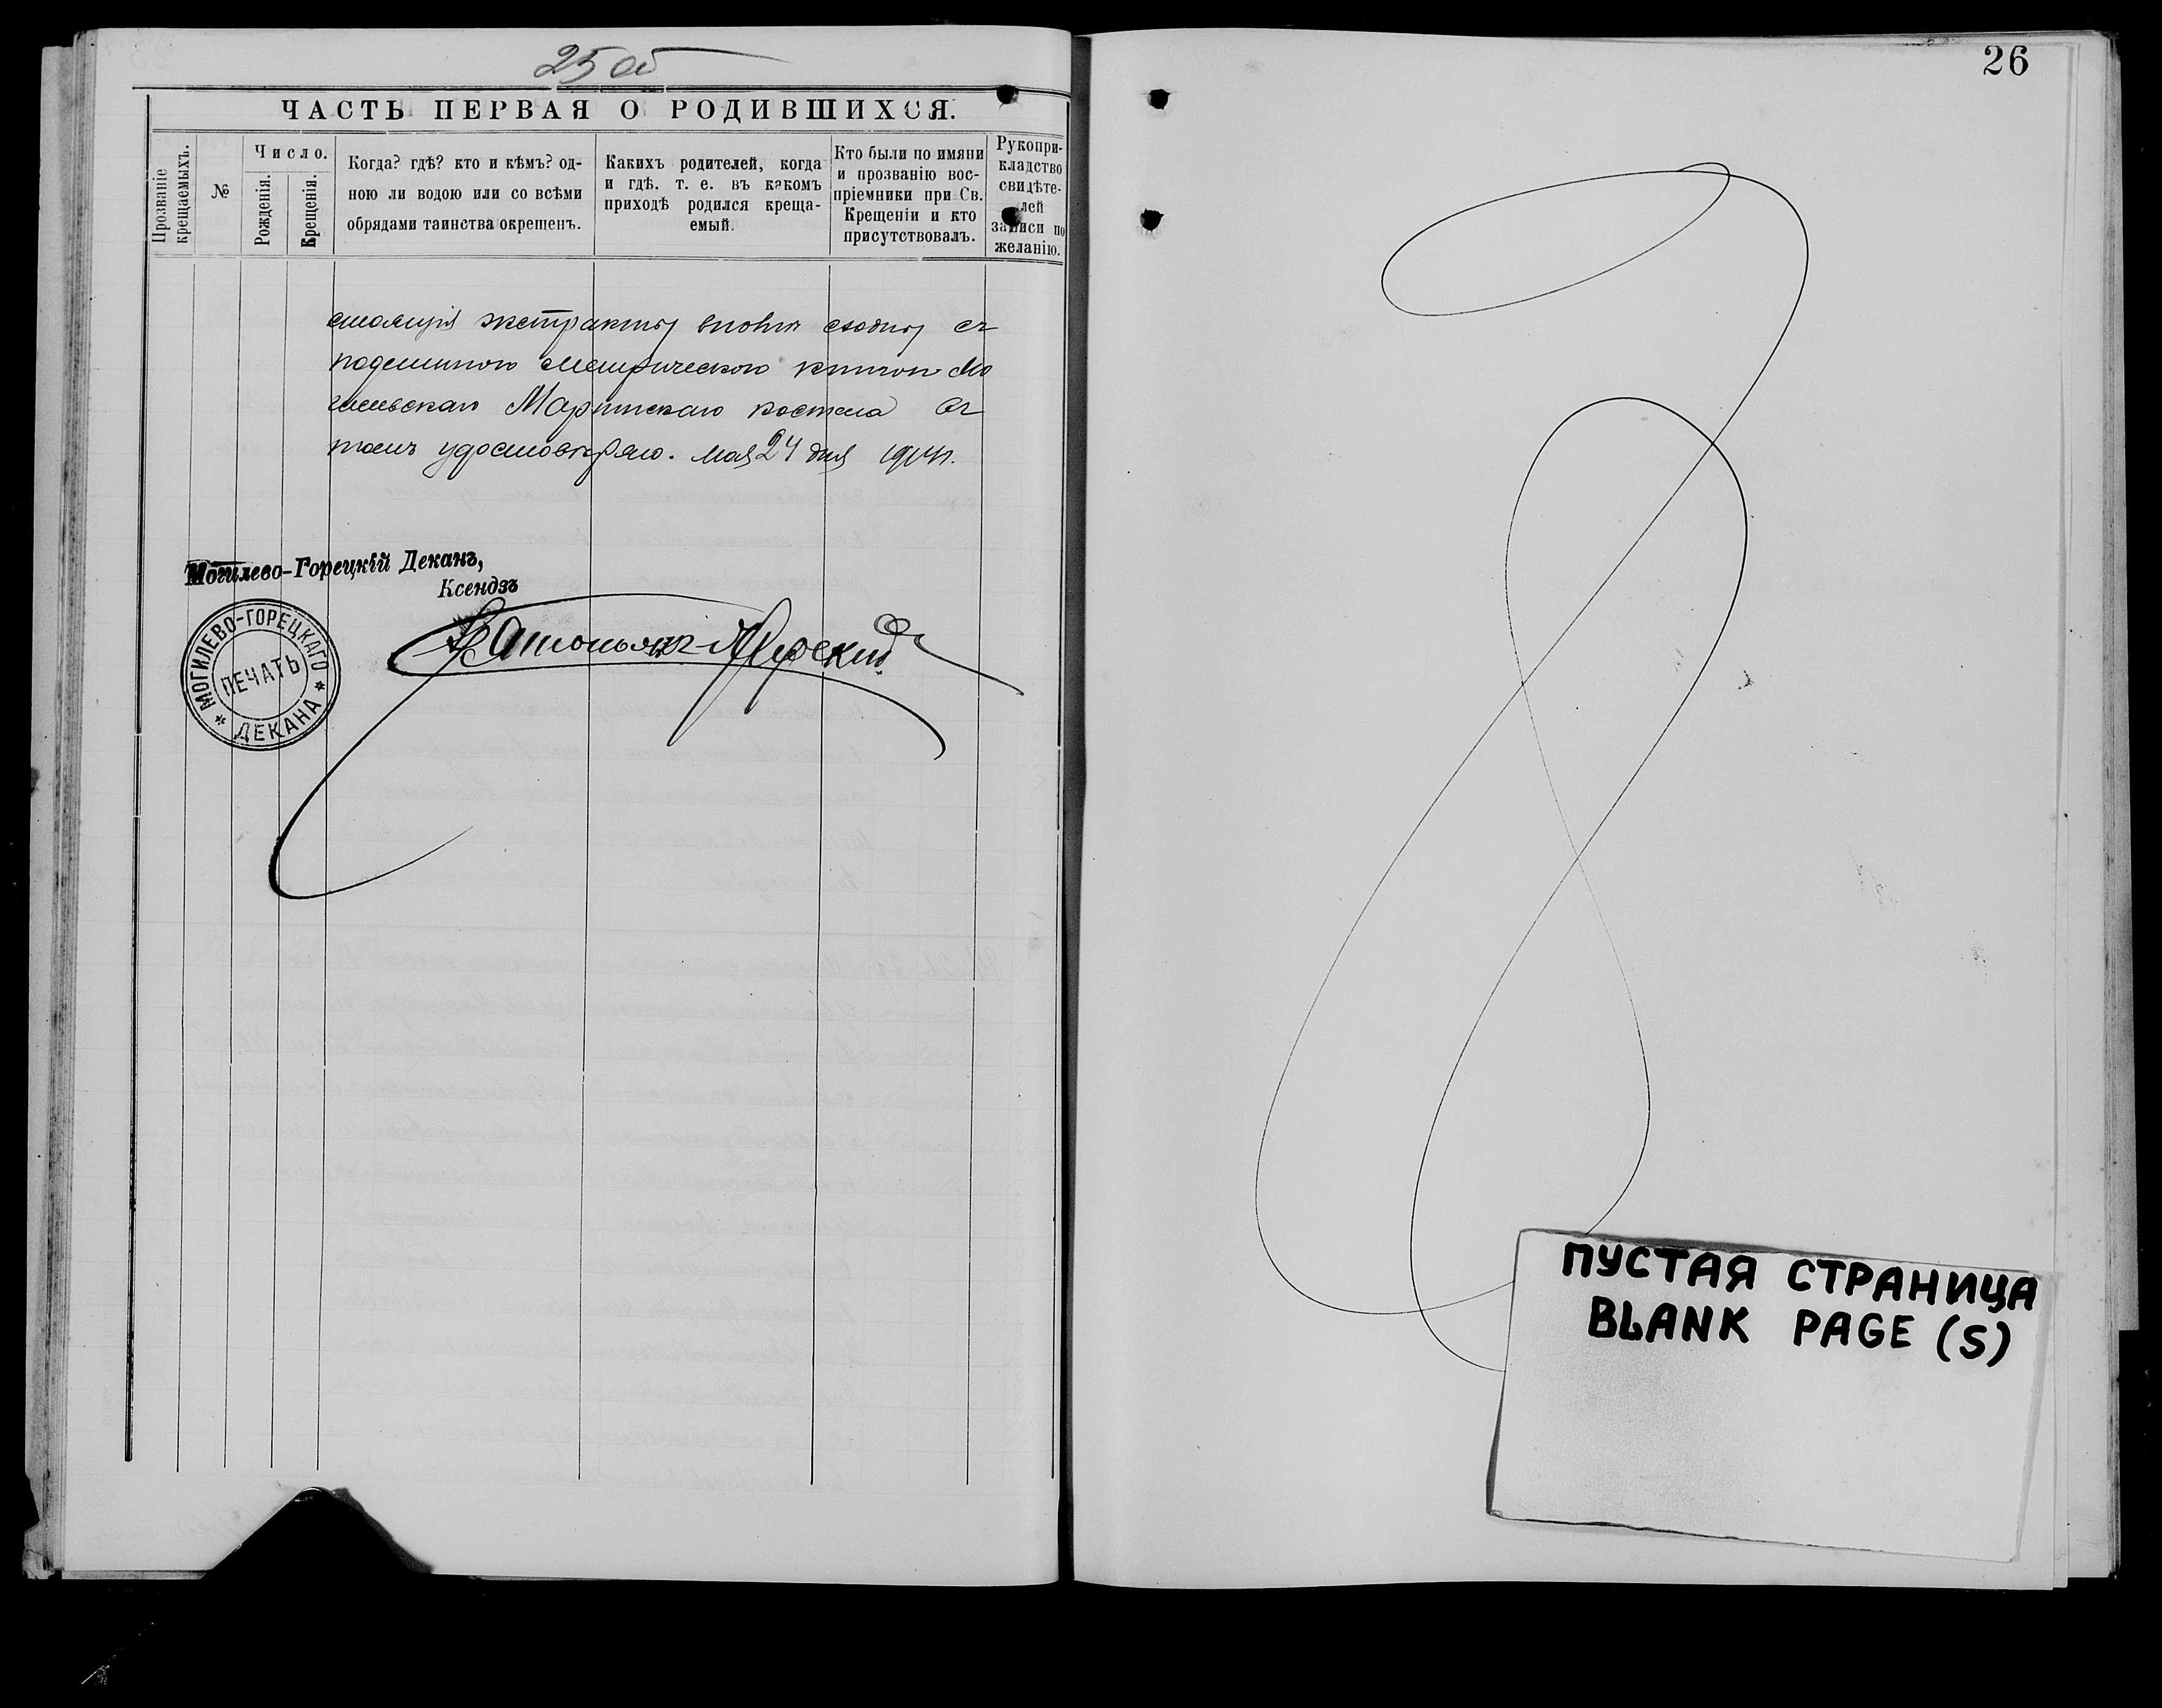 25 об
ЧАСТЬ ПЕРВАЯ О РОДИВШИХСЯ.
Прозваніе крещаемыхъ.
№
Число.
Рожденія.
Крещенія.
Когда? гдѣ? кто и кѣмъ? од-
ною ли водою или со всѣми
обрядами таинства окрещенъ.
Какихъ родителей, когда
и гдѣ. т. е. въ какомъ
приходѣ родился креща-
емый.
Кто были по имяни
и прозванію вос-
пріемники при Св.
Крещеніи и кто
присутствовалъ.
Рукопри-
кладство
свидѣте-
лей
записи по
желанію.
стоящій экстрактъ вполнѣ сходны съ
подлинною метрическою книгою Мо
гилевскаго Маріинскаго костела въ
томъ удостовѣряю. мая 24 дня 1914 г.
Могилево-Горецкій Деканъ,
Ксендзъ
МОГИЛЕВО-ГОРЕЦКАГО
ПЕЧАТЬ
* ДЕКАНА *
26
ПУСТАЯ СТРАНИЦА
BLANK PAGE (S)